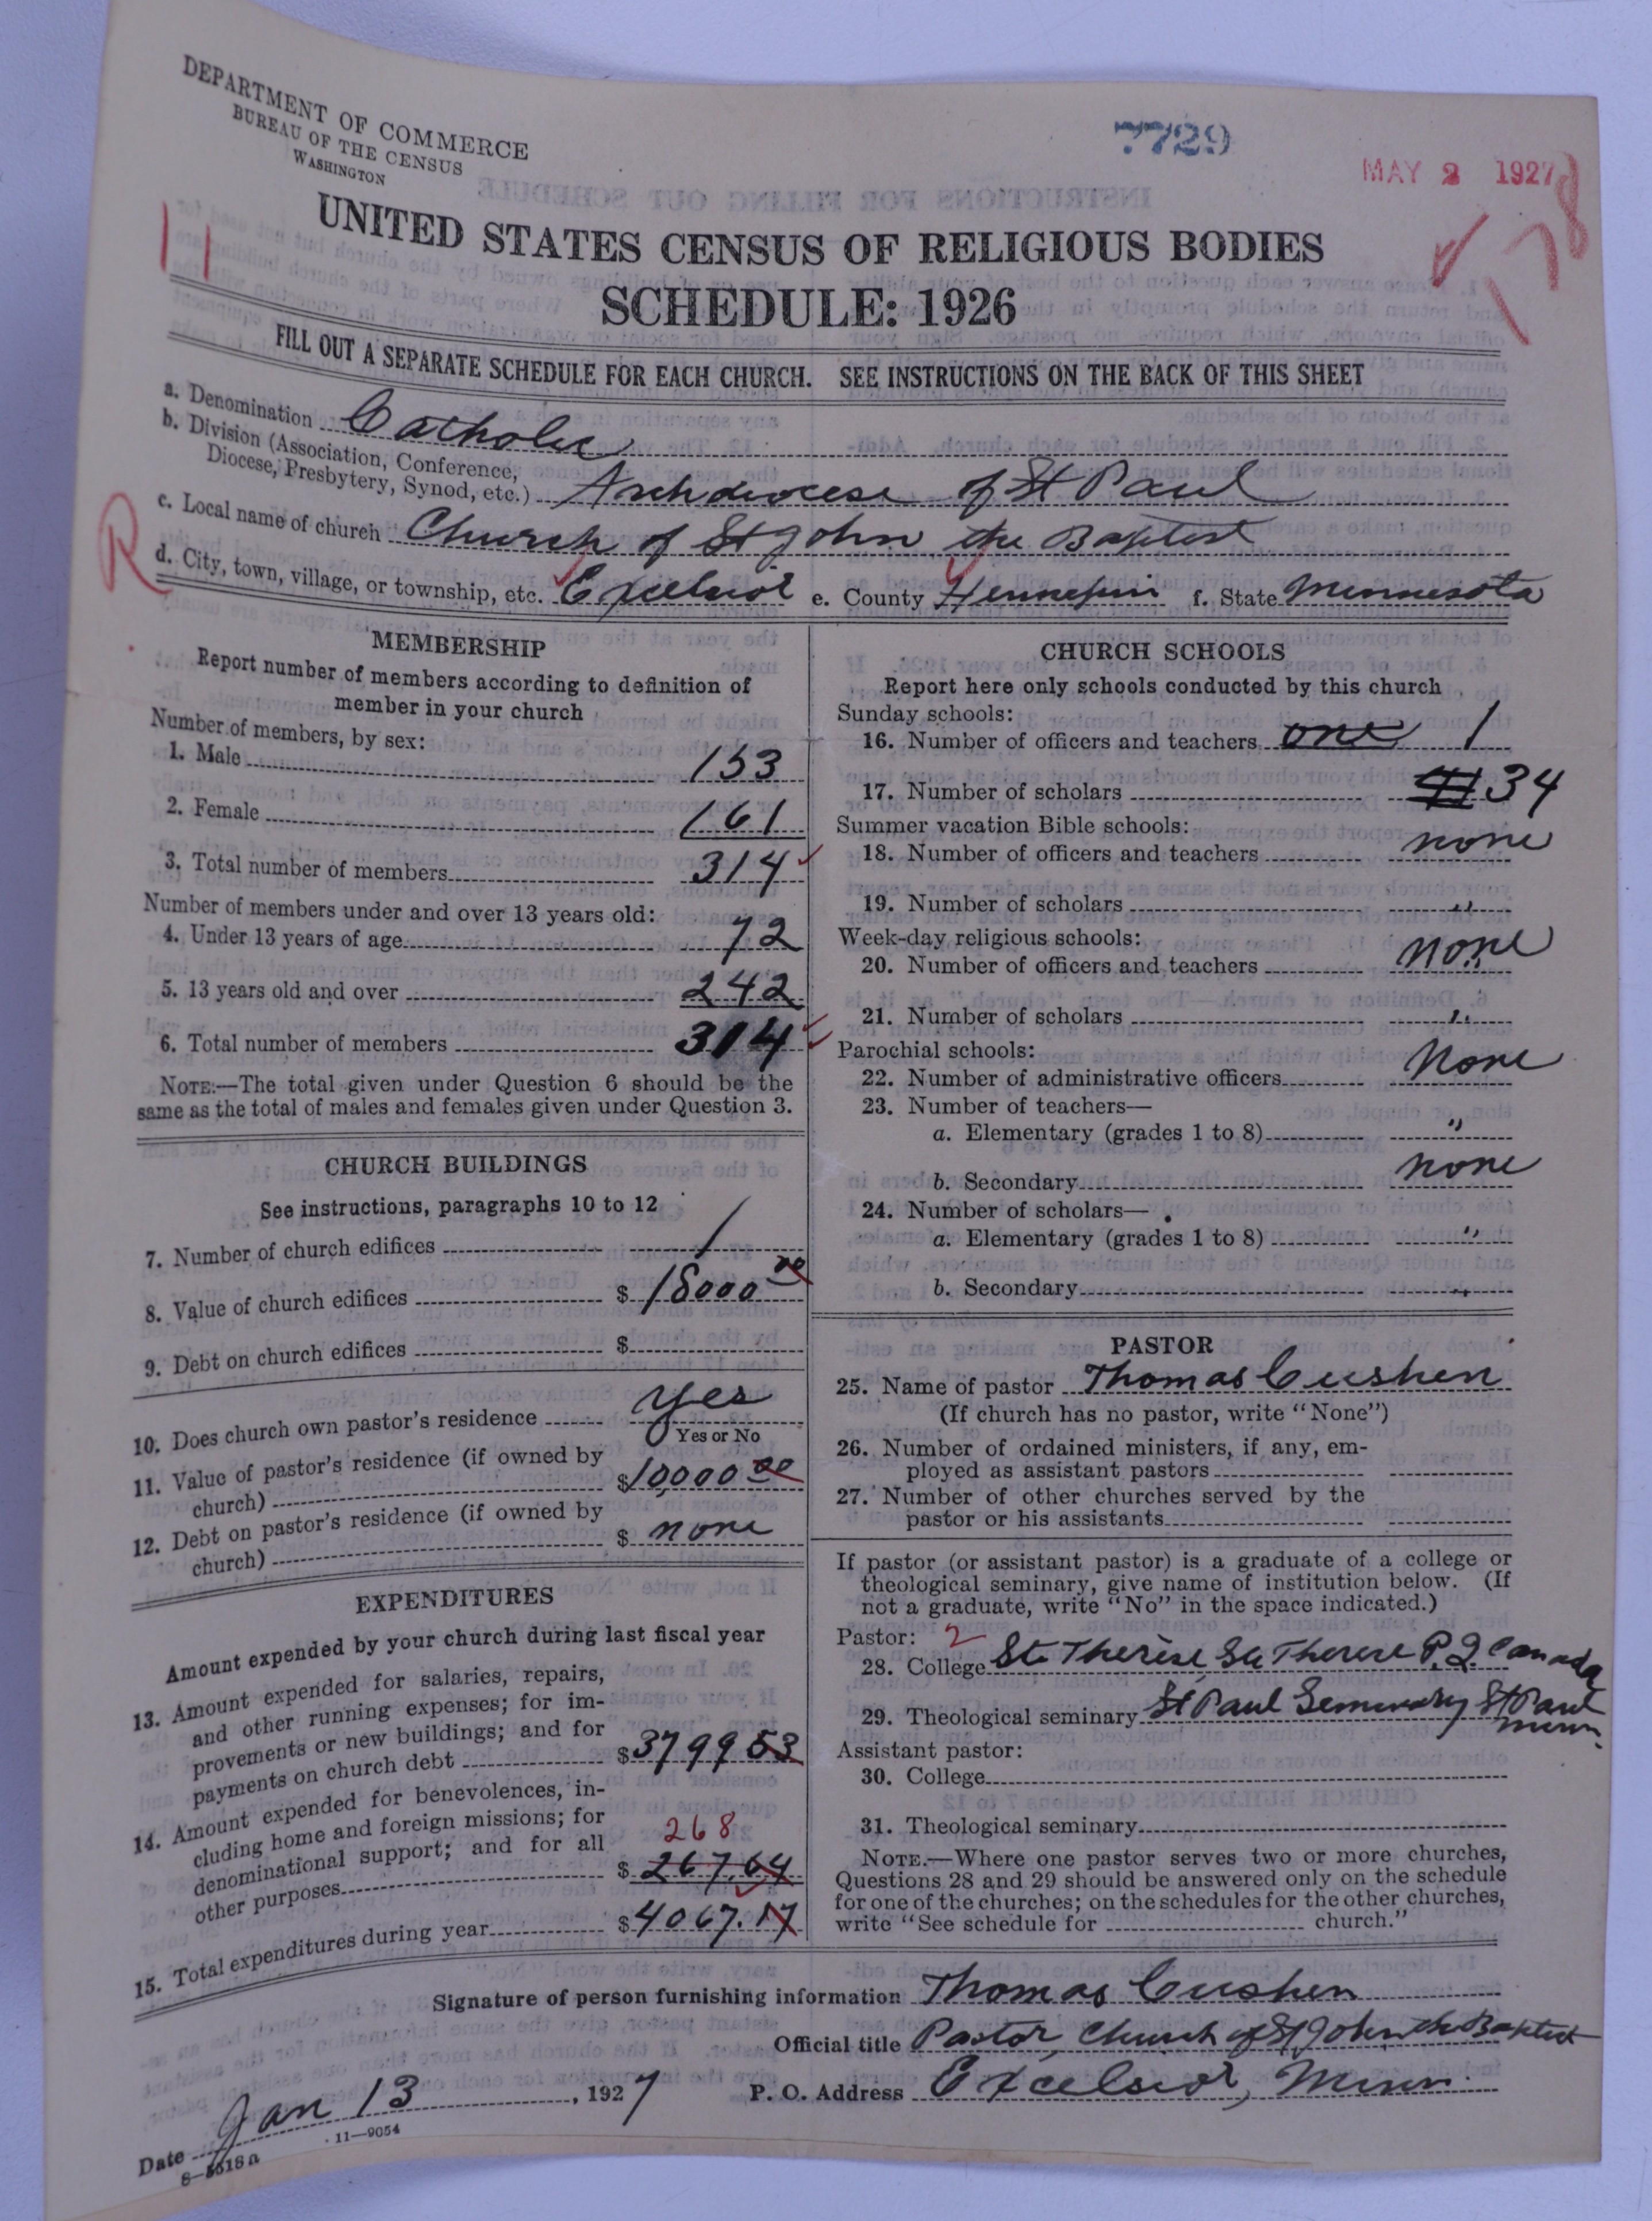 DEPARTMENT OF COMMERCE
BUREAU OF THE CENSUS
WASHINGTON
7729
MAY 2 1927
178
11
UNITED STATES CENSUS OF RELIGIOUS BODIES
SCHEDULE: 1926
FILL OUT A SEPARATE SCHEDULE FOR EACH CHURCH. SEE INSTRUCTIONS ON THE BACK OF THIS SHEET
a. Denomination Catholic
b. Division (Association, Conference,
Diocese, Presbytery, Synod, etc.) Archdiocese of St Paul
c. Local name of church Church of St John the Baptist
R
d. City, town, village, or township, etc. Excelsior e. County Hennepin f. State Minnesota
MEMBERSHIP
Report number of members according to definition of
member in your church
Number of members, by sex:
1. Male 153
2. Female 161
3. Total number of members 314
Number of members under and over 13 years old:
4. Under 13 years of age 72
5. 13 years old and over 242
6. Total number of members 314
NOTE:—The total given under Question 6 should be the
same as the total of males and females given under Question 3.
CHURCH BUILDINGS
See instructions, paragraphs 10 to 12
7. Number of church edifices 1
8. Value of church edifices $ 18000 00
9. Debt on church edifices $
10. Does church own pastor's residence yes
Yes or No
11. Value of pastor's residence (if owned by
church) $10000 00
12. Debt on pastor's residence (if owned by
church) $ none
EXPENDITURES
Amount expended by your church during last fiscal year
13. Amount expended for salaries, repairs,
and other running expenses; for im-
provements or new buildings; and for
payments on church debt $3799 53
14. Amount expended for benevolences, in-
cluding home and foreign missions; for
268
denominational support; and for all
other purposes $ 267.64
15. Total expenditures during year $4067.17
CHURCH SCHOOLS
Report here only schools conducted by this church
Sunday schools:
16. Number of officers and teachers one 1
17. Number of scholars 34
Summer vacation Bible schools:
18. Number of officers and teachers none
19. Number of scholars "
Week-day religious schools:
20. Number of officers and teachers none
21. Number of scholars "
Parochial schools:
22. Number of administrative officers None
23. Number of teachers—
a. Elementary (grades 1 to 8) "
b. Secondary none
24. Number of scholars—
a. Elementary (grades 1 to 8) "
b. Secondary "
PASTOR
25. Name of pastor Thomas Cushen
(If church has no pastor, write "None")
26. Number of ordained ministers, if any, em-
ployed as assistant pastors
27. Number of other churches served by the
pastor or his assistants
If pastor (or assistant pastor) is a graduate of a college or
theological seminary, give name of institution below. (If
not a graduate, write "No" in the space indicated.)
Pastor: 2
28. College Ste Therèse, Ste Therese P.Q. Canada
29. Theological seminary St Paul Seminary St Paul
Minn.
Assistant pastor:
30. College
31. Theological seminary
NOTE.—Where one pastor serves two or more churches,
Questions 28 and 29 should be answered only on the schedule
for one of the churches; on the schedules for the other churches,
write "See schedule for church."
Signature of person furnishing information Thomas Cushen
Official title Pastor, Church of St John the Baptist
Date Jan 13, 1927 P. O. Address Excelsior, Minn.
8—5518a 11—9054